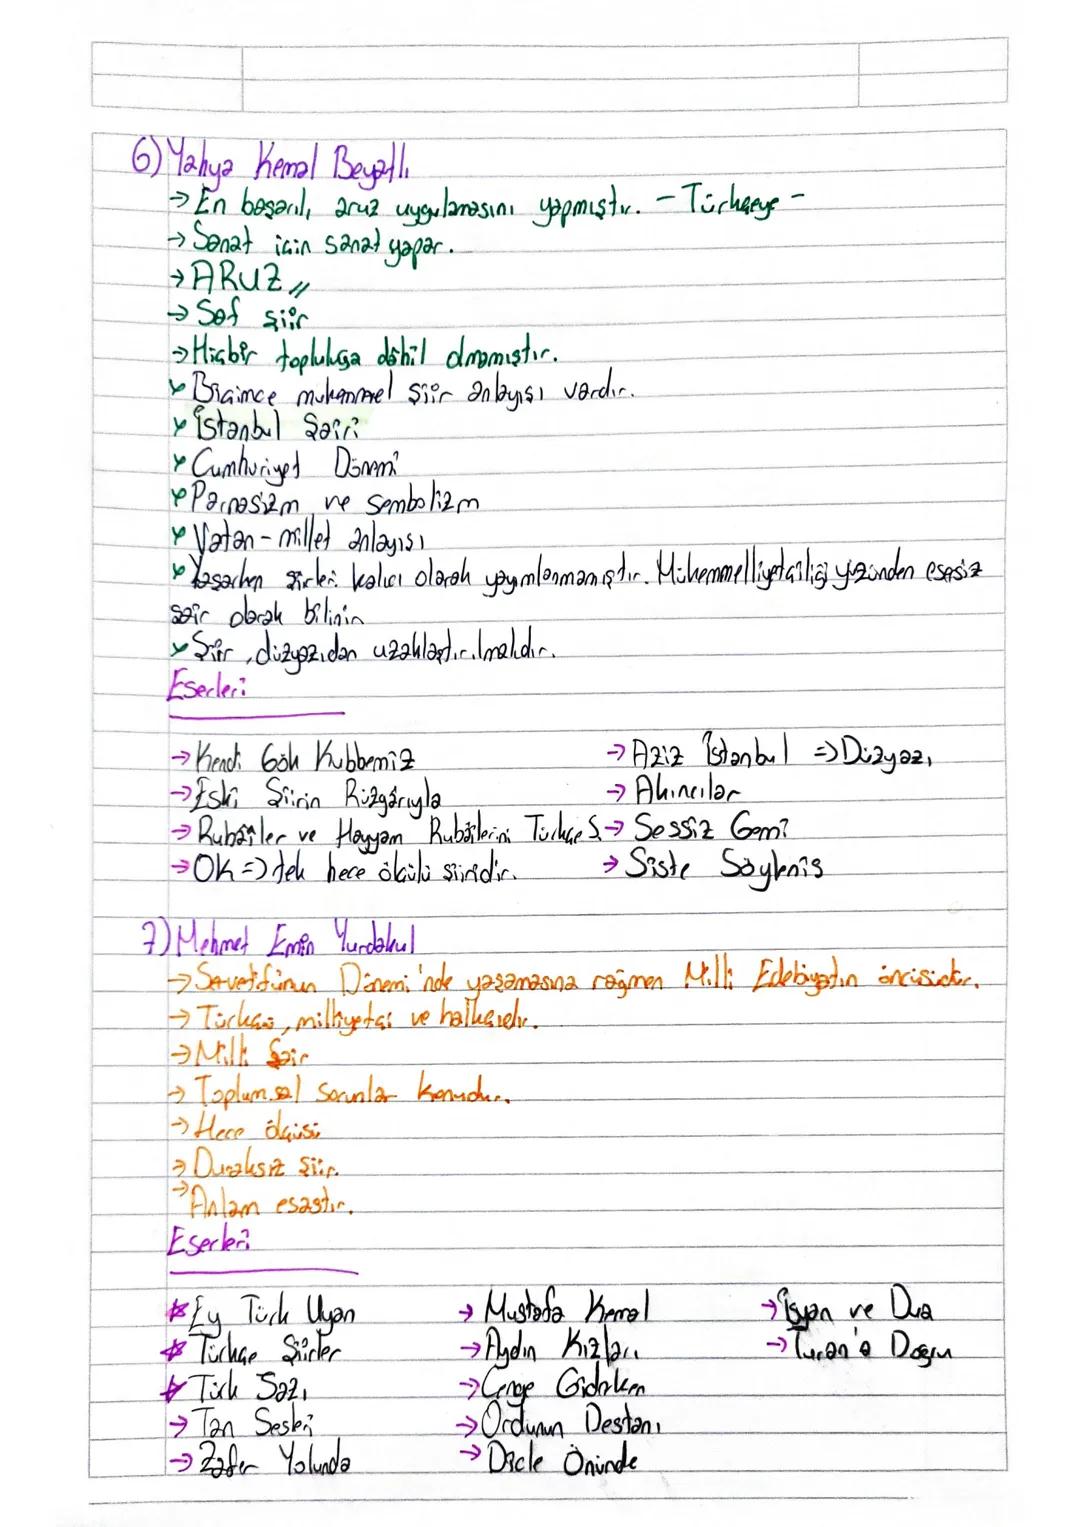 6) Yahya Kemal Beyatlı
→ En başarılı aruz uygulamasını yapmıştır. - Türkçeye -
→ Sanat için sanat yapar.
→ ARUZ //
→ Saf şiir
→ Hiçbir topluluğa dâhil olmamıştır.
Biçimce mukemmel şiir anlayışı vardır.
İstanbul Şairi
Cumhuriyet Dönemi
Parnasizm ve sembolizm
Vatan - millet anlayışı
Yaşarken şiirleri kalıcı olarak yayımlanmamıştır. Mükemmelliyetçiliği yüzünden esersiz
şair olarak bilinir.
Şiir, düzyazıdan uzaklaştırılmalıdır.
Eserleri
→ Kendi Gök Kubbemiz → Aziz İstanbul => Düzyazı
→ Eski Şiirin Rüzgârıyla → Akıncılar
→ Rubâîler ve Hayyam Rubâîlerini Türkçe S. → Sessiz Gemi
→ OK => tek hece ölçülü şiiridir. → Siste Söyleniş
7) Mehmet Emin Yurdakul
→ Servetifünun Dönemi'nde yaşamasına rağmen Milli Edebiyatın öncüsüdür.
→ Türkçü, milliyetçi ve halkçıdır.
→ Milli Şair
→ Toplumsal sorunlar konudur.
→ Hece ölçüsü
→ Duraksız şiir.
→ Anlam esastır.
Eserleri
Ey Türk Uyan → Mustafa Kemal → İsyan ve Dua
Türkçe Şiirler → Aydın Kızları → Turan'a Doğru
Türk Sazı → Cenge Giderken
→ Tan Sesleri → Ordunun Destanı
→ Zafer Yolunda → Dicle Önünde